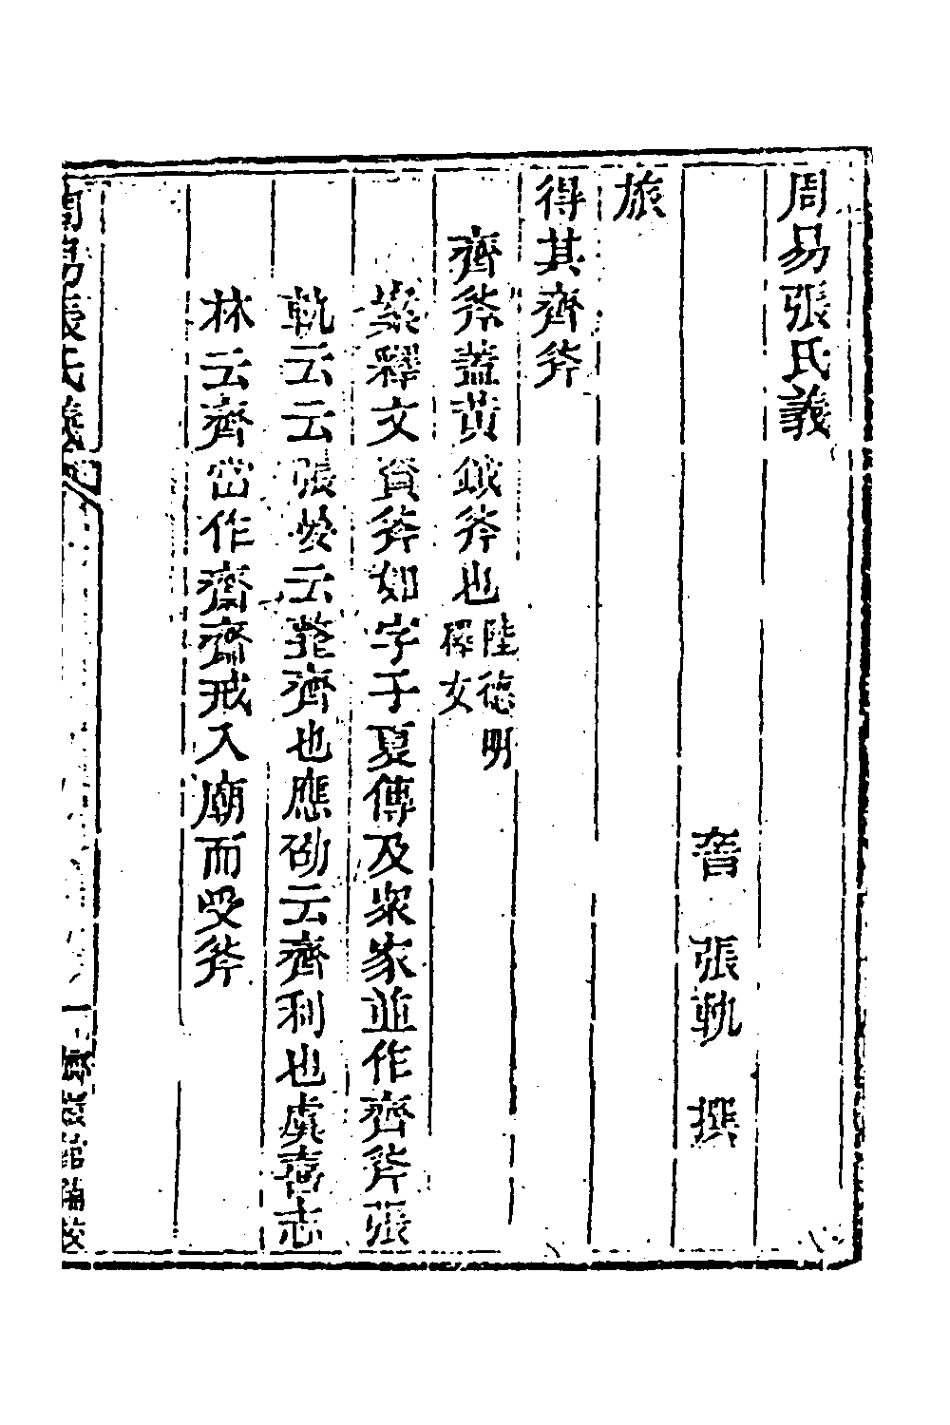 周易張氏義
晉　張軌　撰
旅
得其齊斧
齊斧蓋黄鉞斧也陸德明釋文
案釋文資斧如字子夏傳及衆家並作齊斧張
軌云云張晏云整齊也應劭云齊利也虞喜志
林云齊當作齋齋戒入廟而受斧
周易張氏義
一